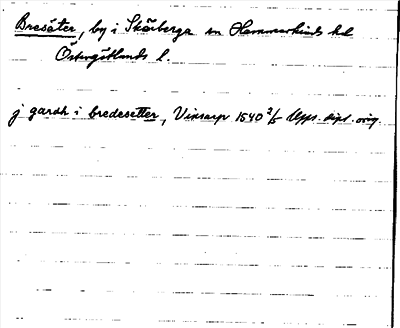 Bresäter, by i Skärberga sn Hammarkinds hd
Östergötlands l.
j gardh i bredesetter, Vinsarp 1540 2/5 Upps. dipl. orig.